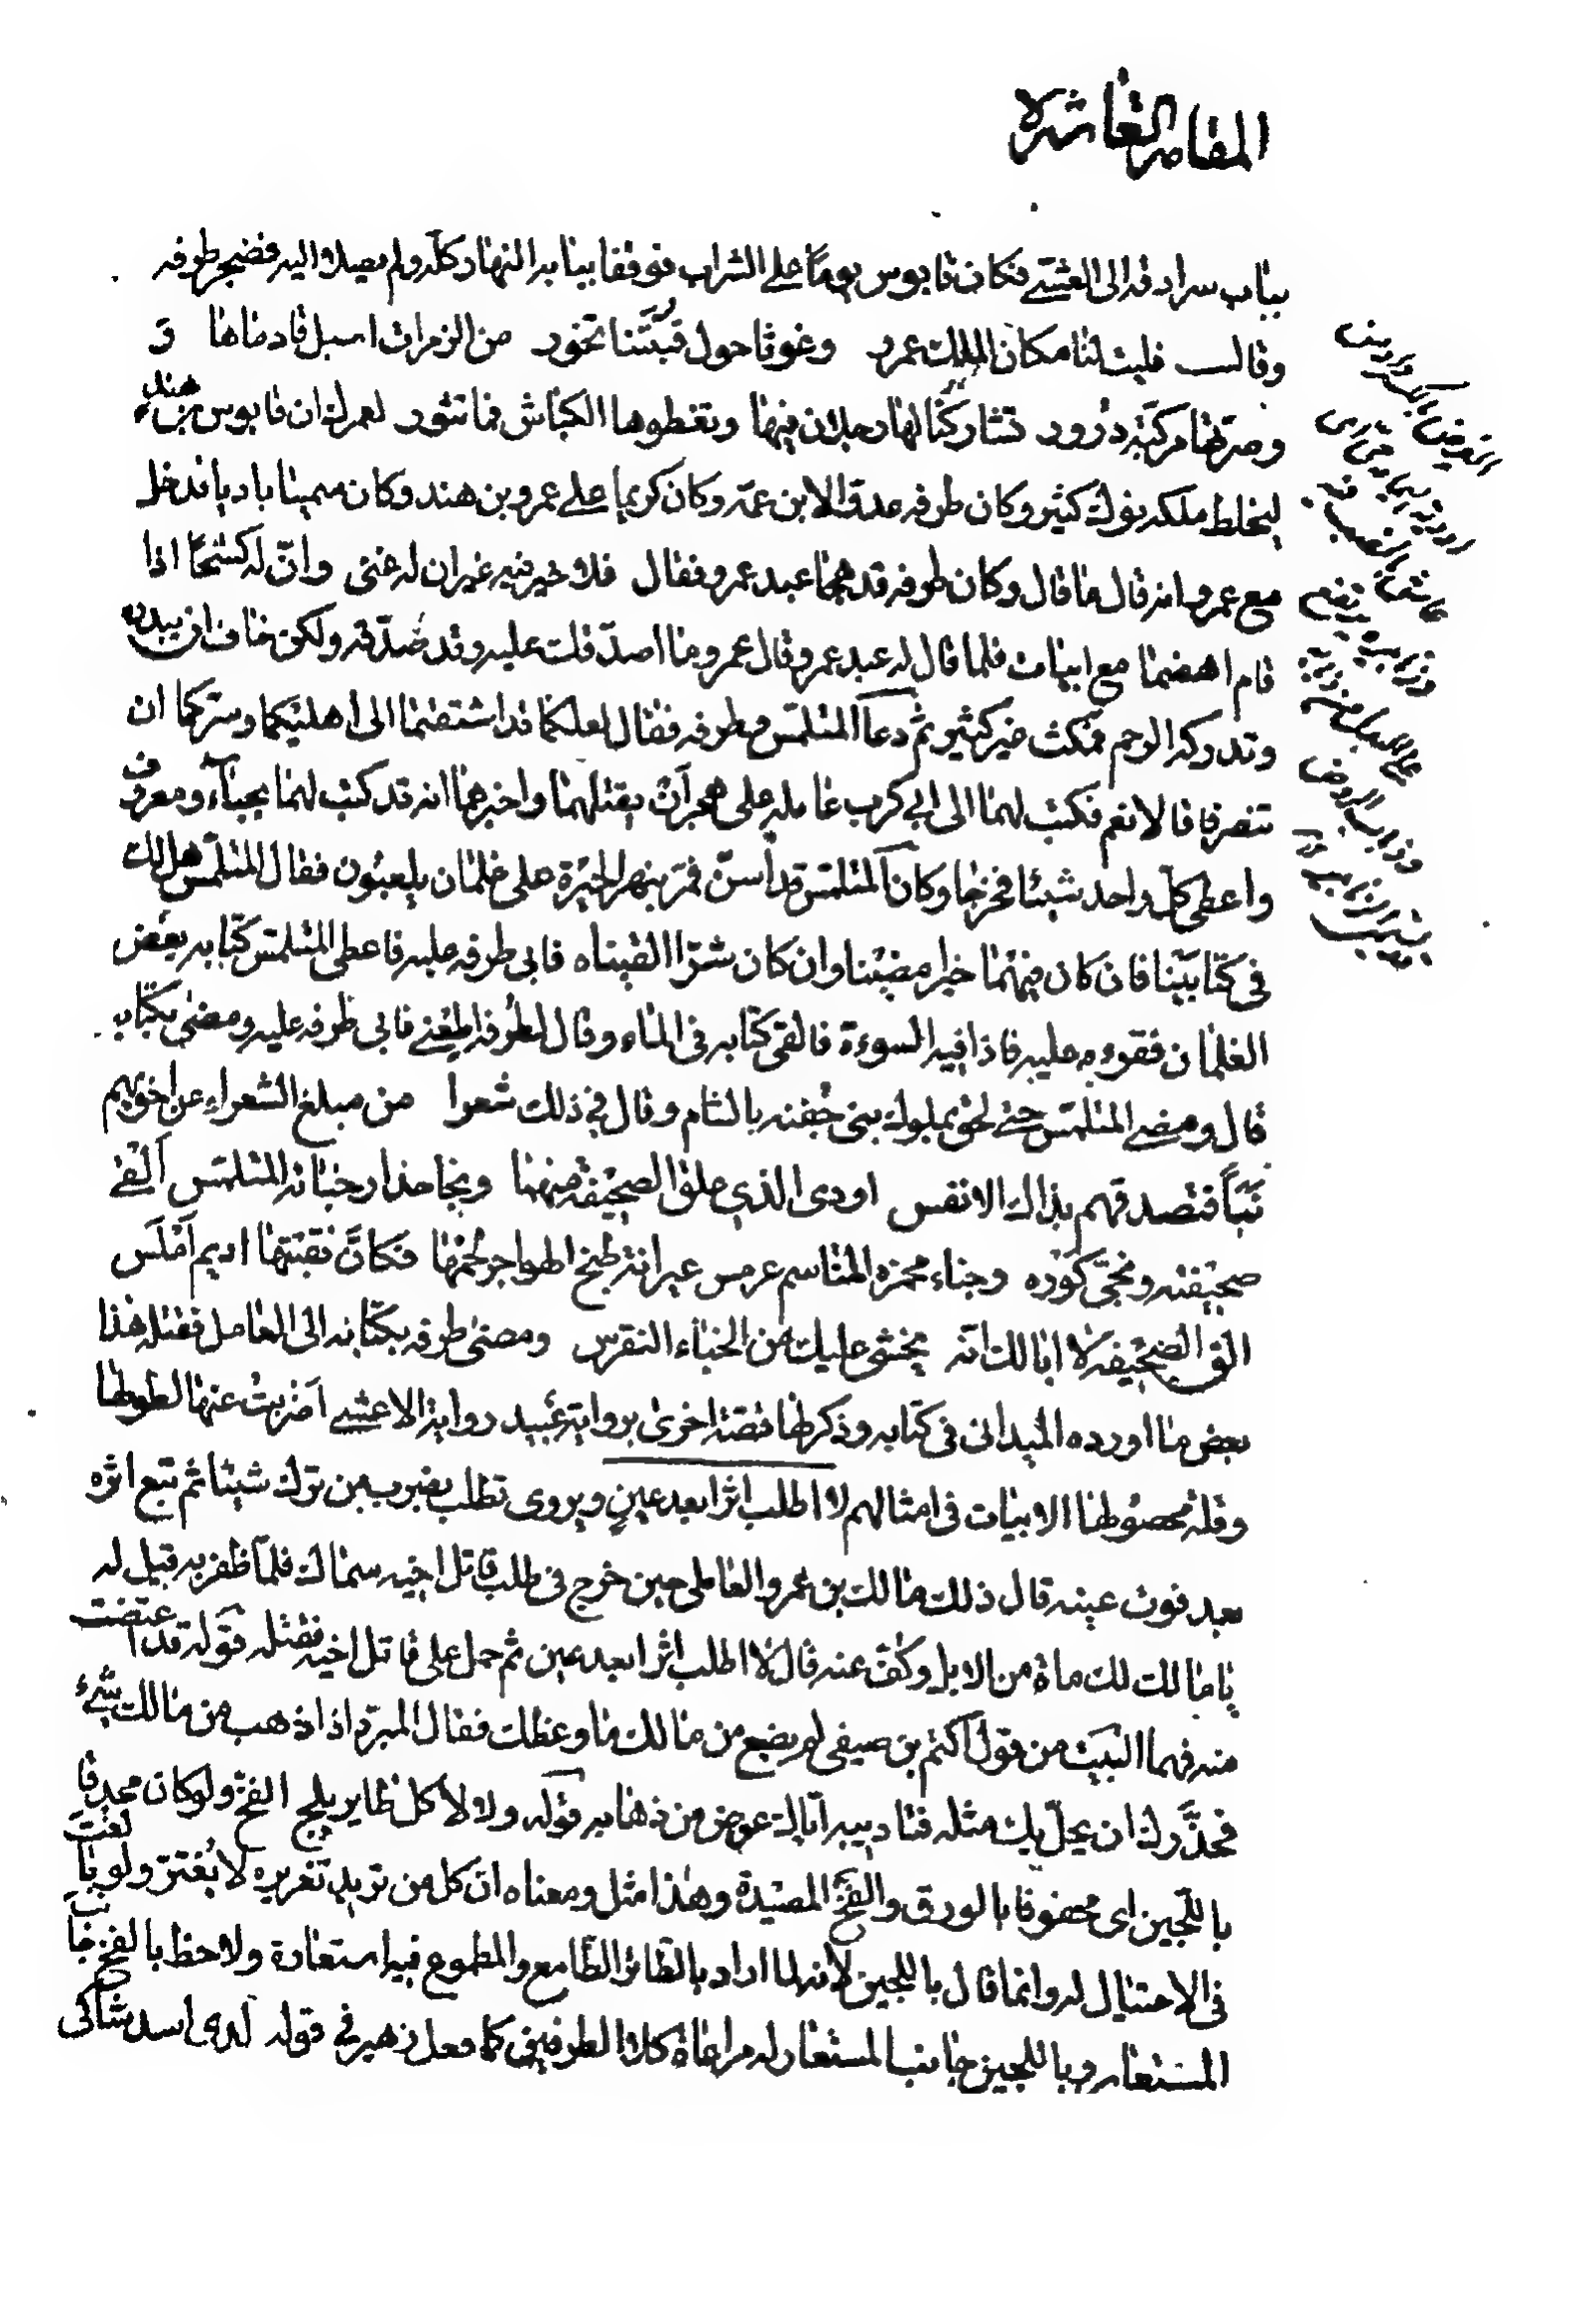 المقامة العاشرة
بباب سرادقه الى العشي فكان قابوس يوما على الشراب فوقفا ببابه النهار كله ولم يصلا اليه فضجر طرفه
وقال فليت لنا مكان الملك عمرو رغوثا حول قبتنا تخور من الزمرات اسبل قادماها و
وضرتها مركنة درور تشاركنا لها رخلان فيها وتغطوها الكباش فما تنور لعمرك ان قابوس بن هند
ليخلط ملكه نوك كثير وكان طرفه عدوا لابن عمه وكان كريما على عمرو بن هند وكان سمينا بادنا فدخل
مع عمرو انه قال ما قال وكان طرفه قد هجا عبد عمرو فقال فلا خير فيه غير ان له غنى وان له كشحا اذا
قام اهضما مع ابيات فلما قال له عبد عمرو قال عمرو ما اصدقك عليه وقد صدقه ولكن خاف ان ينذره
وتدركه الرحم فمكث غير كثير ثم دعا المتلمس وطرفه فقال لعلكما قد اشتقتما الى اهليكما وسركما ان
تنصرفا قالا نعم فكتب لهما الى ابي كرب عامله على هجر ان يقتلهما واخبرهما انه قد كتب لهما بحباء ومعروف
واعطى كل واحد شيئا فخرجا وكان المتلمس قد اسن فمر بنهر الحيرة على غلمان يلعبون فقال المتلمس هل لك
فى كتابينا فان كان فيهما خيرا مضينا وان كان شرا القيناه فابى طرفه عليه فاعطى المتلمس كتابه بعض
الغلمان فقرءه عليه فاذا فيه السوءة فالقى كتابه فى الماء وقال لطرفه اطعني فابى طرفه عليه ومضى بكتابه
قال ومضى المتلمس حتى لحق بملوك بنى جفنه بالشام وقال في ذلك شعرا من مبلغ الشعراء عن اخويهم
نبأ فتصدقهم بذاك الانفس اودى الذي علق الصحيفة منهما ونجا حذار حبائه المتلمس القى
صحيفته ونجى كوره وجناء مجمرة المناسم عرمس عيرانة طبخ الهواجر لحمها فكان نقبتها اديم املس
الق الصحيفة لا ابا لك انه يخشى عليك من الحباء النقرس ومضى طرفه بكتابه الى العامل فقتله هذا
بعض ما اورده الميدانى فى كتابه وذكر لها قصة اخرى برواية عبيد رواية الاعشى اضربت عنها لطولها
وقلة محصولها الابيات فى امثالهم لا اطلب اثرا بعد عين ويروى تطلب يضرب من ترك شيئا ثم تبع اثره
بعد فوت عينه قال ذلك مالك بن عمرو العاملى حين خرج فى طلب قاتل اخيه سماك فلما ظفر به قيل له
يا مالك لك ماة من الابل وكف عنه قال لا اطلب اثرا بعد عين ثم حمل على قاتل اخيه فقتله قوله قد اعتضت
منه فهما البيت من قول اكثم بن صيفى لم يضع من مالك ما وعظك فقال المبرد اذا ذهب من مالك شيء
فحذرك ان يحل بك مثله فتاديبه اياك عوض من ذهابه قوله ولا كل طاير يلج الفخ ولو كان محدقا
باللجين اى محفوفا بالورق والفخ المصيدة وهذا مثل ومعناه ان كل من تريد تغريره لا يغتر ولو بالغت
فى الاحتيال له وانما قال باللجين لانه لما اراد بالطائر الطامع والمطموع فيه استعارة ولاحظ بالفخ جانب
المستعار وباللجين جانب المستعار له مراعاة كلا الطرفين كما فعل زهير في قوله لدى اسد شاكى